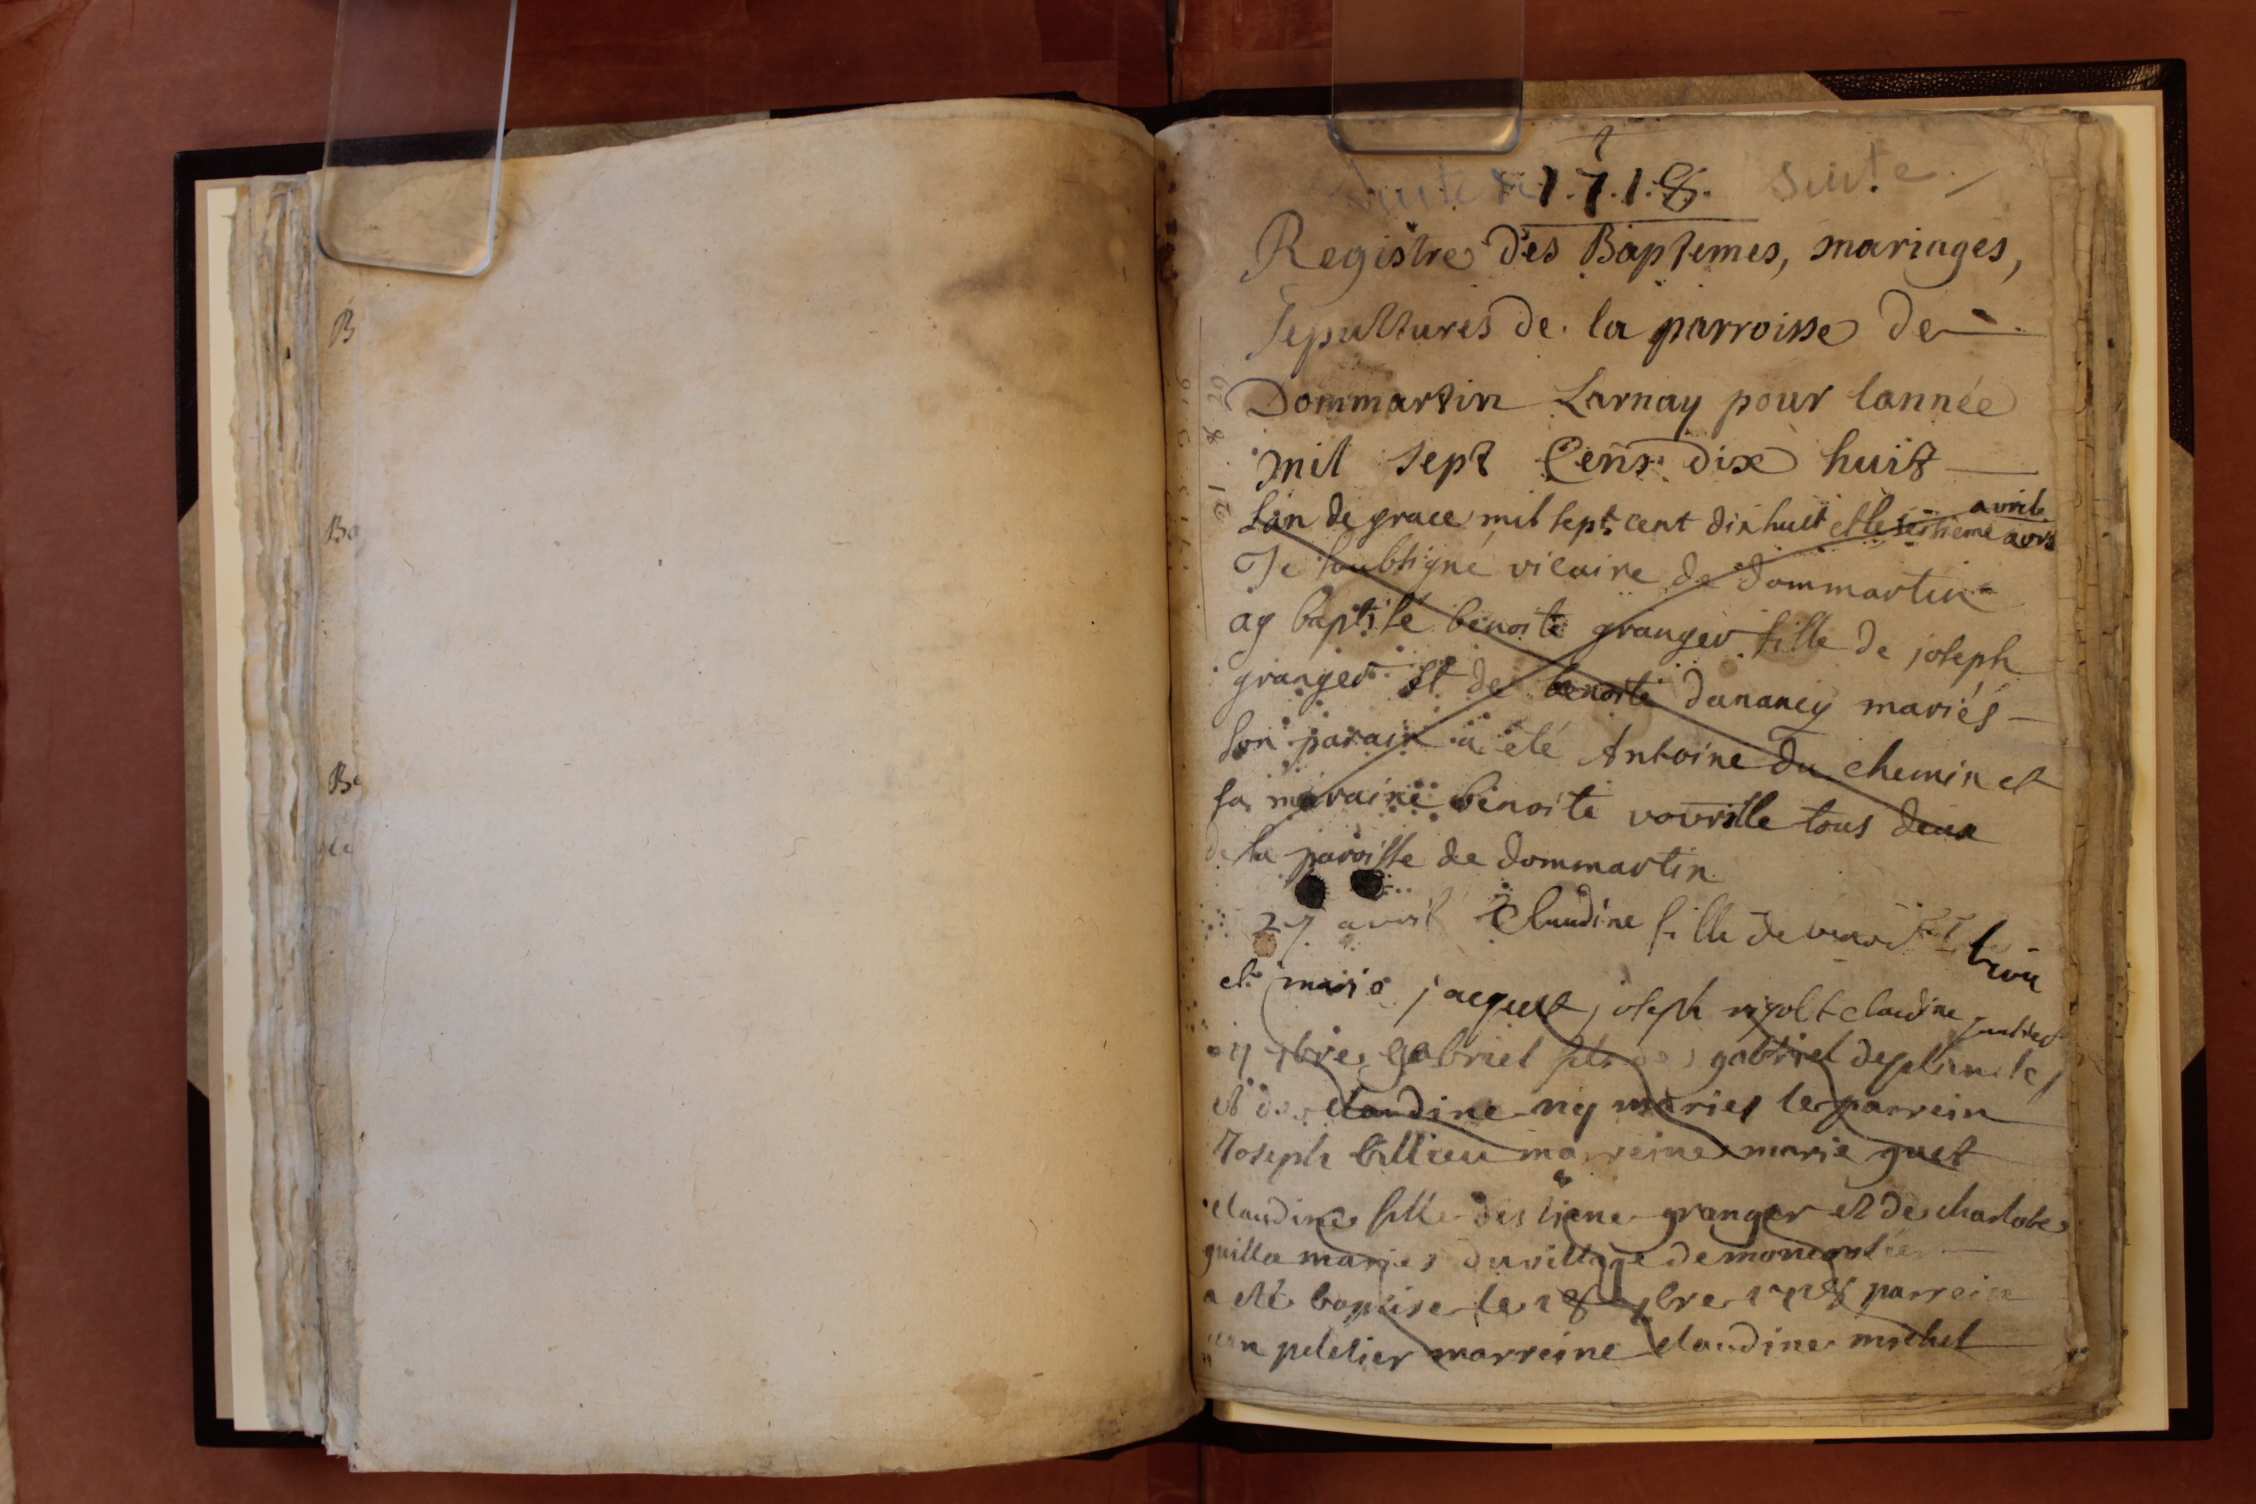 B
Ba
Be
1.7.1.8. suite
Registre des Baptemes, mariages,
Sepultures de la parroisse de
Dommartin Larnay pour lannée
mil sept Cens dix huit
Lan de grace mil sept cent dix huit et le avrile
Je soubsigné vicaire de dommartin
ay baptisé benoite granger fille de joseph
granger et de benoite danancy mariés
son parain a été Antoine du chemin et
sa maraine benoite tous deux
de la paroisse de dommartin
27 avril Claudine fille de
et marie jacquet joseph claudine
7bre gabriel fils de gabriel
et de claudine ny maries le parrein
Joseph billieu marreine marie guet
claudine fille destiene granger et de charlote
guilla maries du village de
a eté baptise le 18 1718 parrein
peletier marreine claudine michel